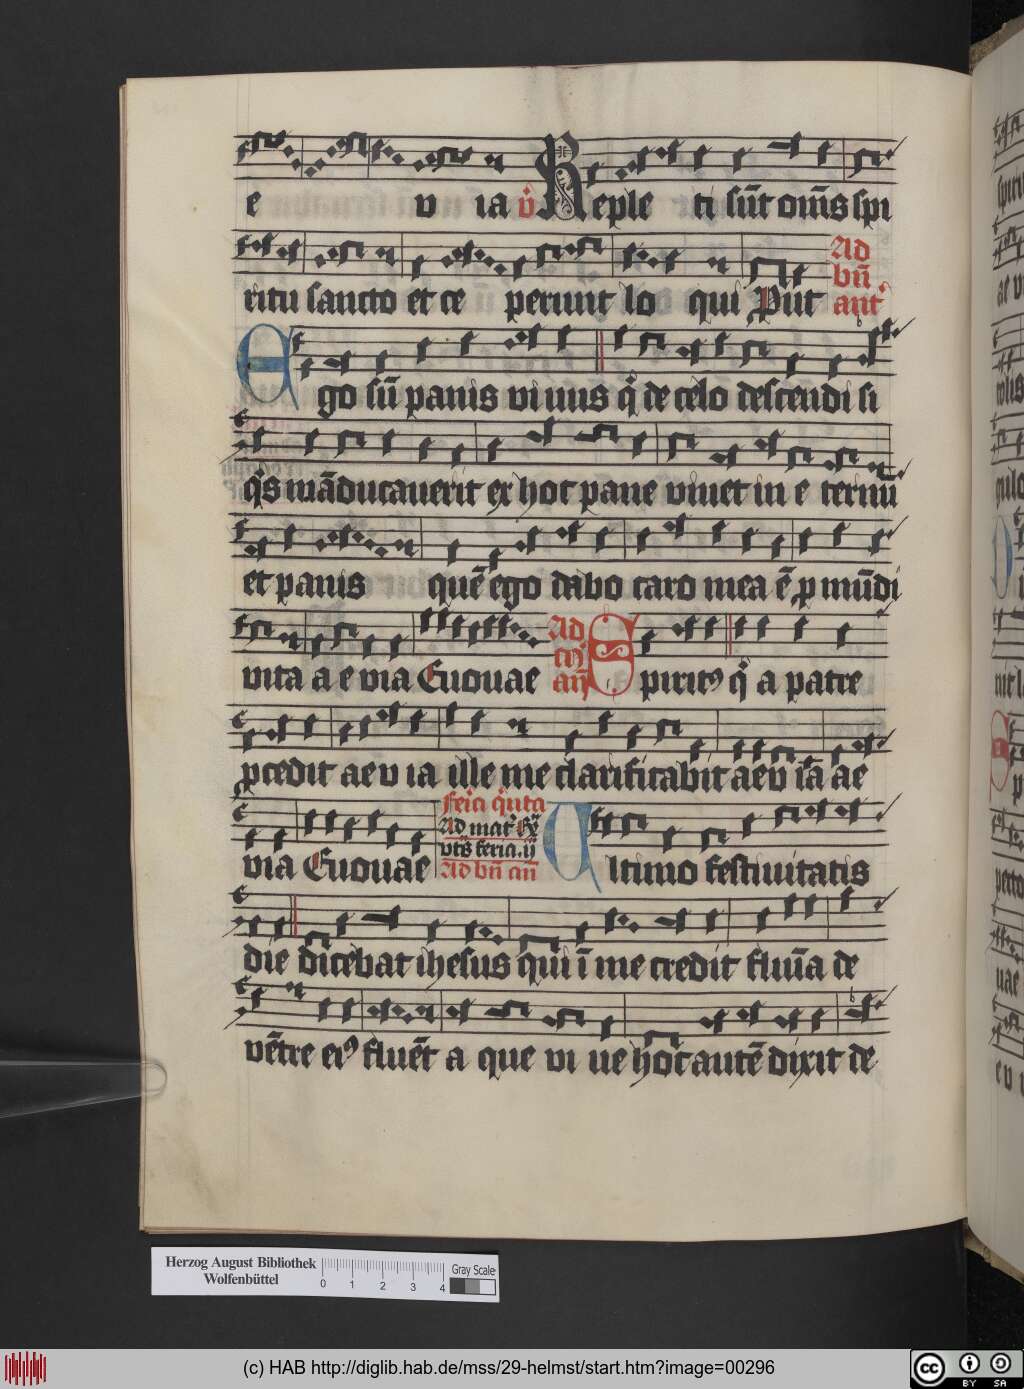 e v ia v̾ Reple ti sūt om̄s spi
ritu sancto et ce perunt lo qui Put Ad bn̄ ant̾
Ego sū panis viuus q̇ de celo descendi si
q̇s māducauerit ex hoc pane viuet in e ternū
et panis quē ego dabo caro mea ē p mūdi
vita a e via Euouae Ad an̄ Spiritꝰ q̇ a patre
pcedit aev ia ille me clarificabit aev īā ae
via Euouae feīa q̇nta
Ad mat̾
vt̄s feria.ij
Ad bn̄ an̄
Vltimo festiuitatis
die dicebat ihesus qui ī me credit flūīa de
vētre eiꝰ fluēt a que vi ue hoc autē dixit de
Herzog August Bibliothek
Wolfenbüttel
0 1 2 3 4
Gray Scale
(c) HAB http://diglib.hab.de/mss/29-helmst/start.htm?image=00296
cc BY SA